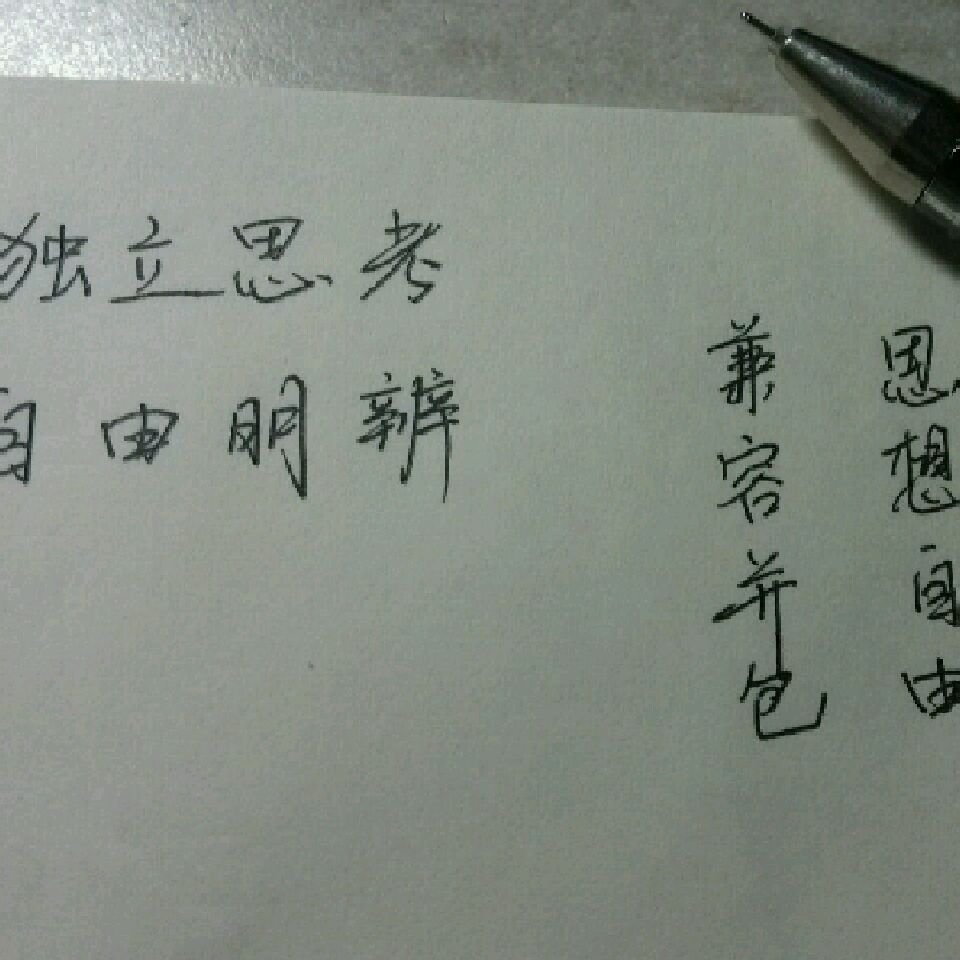 独立思考
自由明辨
思想自由
兼容并包